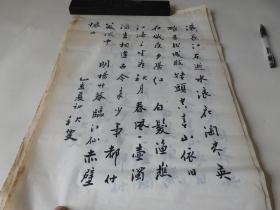 滚长江东逝水浪花淘尽英
雄是非成敗转頭空青山依旧
在几度夕陽红 白髮漁樵
江渚上惯看秋月春风一壶濁
酒喜相逢古今多少事都付
笑谈中 明楊升菴臨江仙赤壁
懷古
夏初